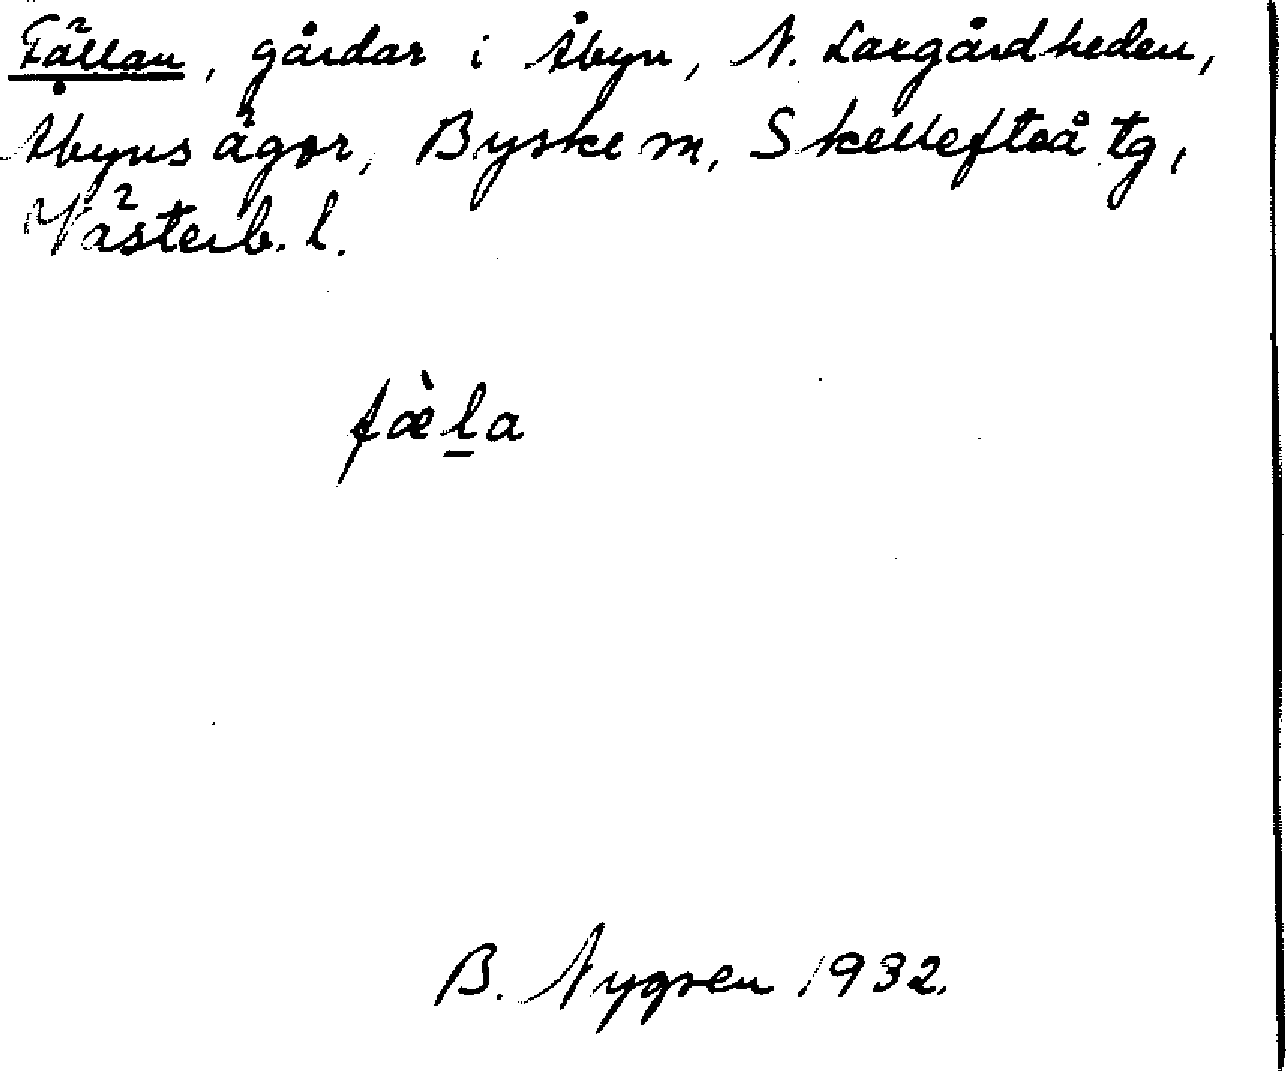 Fällan, gårdar i Åbyn, N. Laxgårdheden,
Åbyns ägor, Byske sn, Skellefteå tg,
Västerb. l.
fæ̀l̲a
B. Nygren 1932.